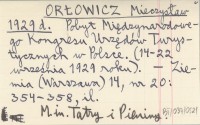 ORŁOWICZ Mieczysław
1929 d. Pobyt Międzynarodowe-
go Kongresu Urzędów Turys-
tycznych w Polsce. (14-22
września 1929 roku). — Zie-
mia (Warszawa) 14, nr 20:
354-358, il.
M. in. Tatry i Pieniny.